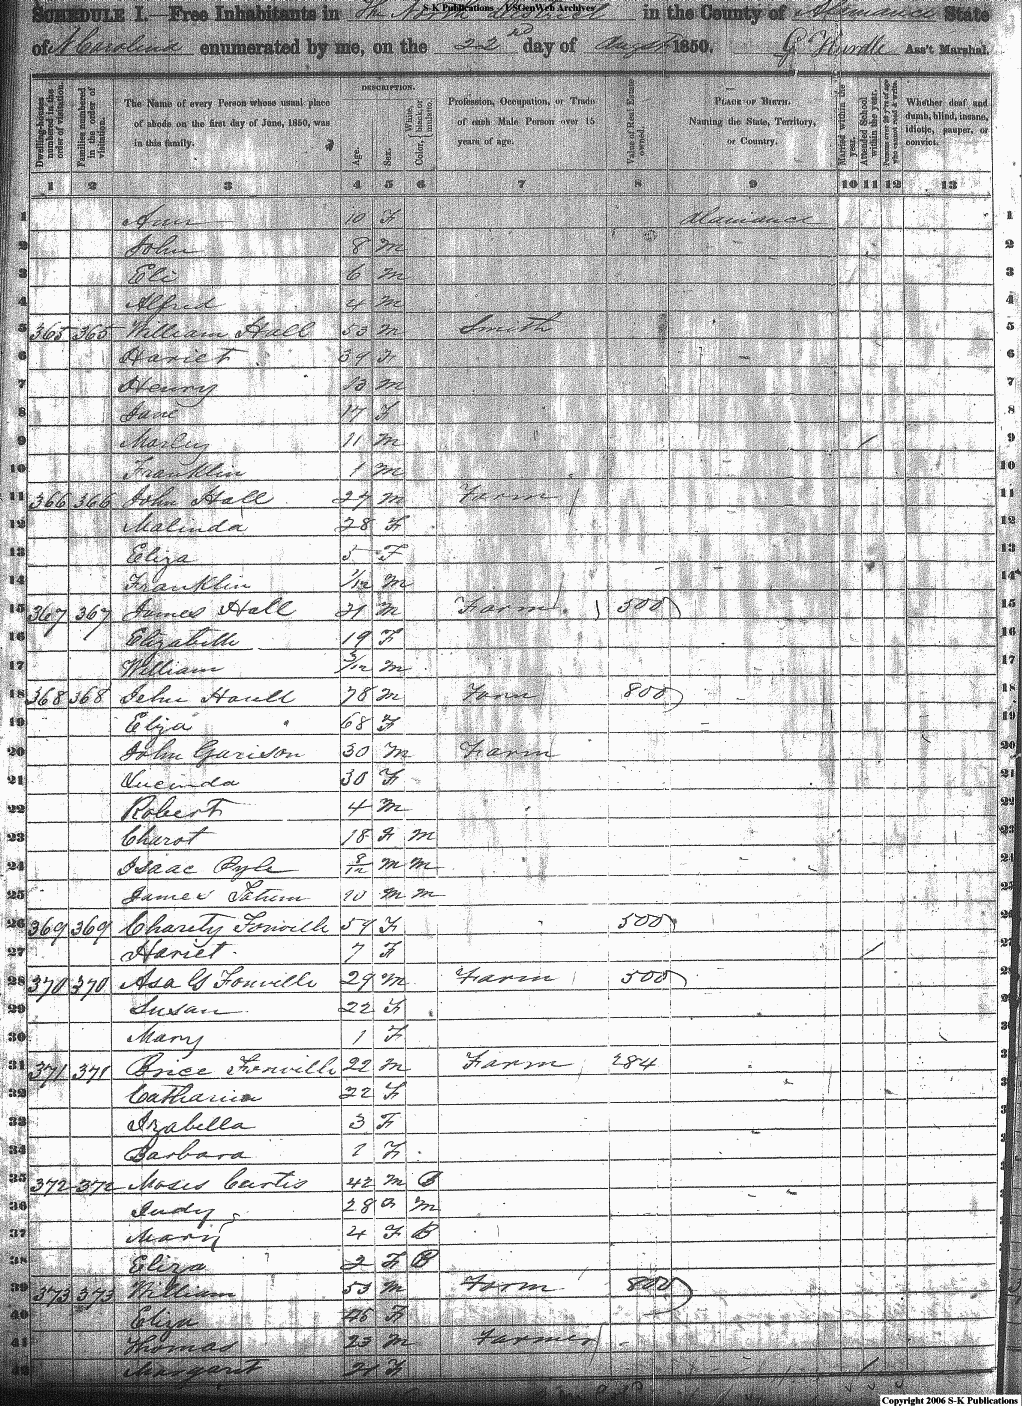 S-K Publications - USGenWeb Archives
SCHEDULE I.—Free Inhabitants in The North District in the County of Alamance State
of N Carolina enumerated by me, on the 22nd day of August 1850. Ass't Marshal.
Dwelling-houses numbered in the order of visitation.
Families numbered in the order of visitation.
The Name of every Person whose usual place of abode on the first day of June, 1850, was in this family.
DESCRIPTION.
Age.
Sex.
Color, White, black, or mulatto.
Profession, Occupation, or Trade of each Male Person over 15 years of age.
Value of Real Estate owned.
PLACE OF BIRTH. Naming the State, Territory, or Country.
Married within the year.
Attended School within the year.
Persons over 20 y'rs of age who cannot read & write.
Whether deaf and dumb, blind, insane, idiotic, pauper, or convict.
1 2 3 4 5 6 7 8 9 10 11 12 13
1 Ann 10 F Alamance 1
2 John 8 M 2
3 Eli 6 M 3
4 Alfred 4 M 4
5 365 365 William Hall 53 M Smith 5
6 Hariet 39 F 6
7 Henry 13 M 7
8 Jane 17 F 8
9 11 M / 9
10 Franklin 1 M 10
11 366 366 John Hall 27 M Farm 11
12 Malinda 28 F 12
13 Eliza 5 F 13
14 Franklin 1/12 M 14
15 367 367 James Hall 21 M Farm 500 15
16 Elizabeth 19 F 16
17 William M 17
18 368 368 John 78 M Farm 800 18
19 Eliza 68 F 19
20 John Garison 30 M Farm 20
21 Lucinda 30 F 21
22 Robert 4 M 22
23 18 F M 23
24 Isaac Pyle 8/12 M M 24
25 James Tatum 10 M M 25
26 369 369 Charety Fonville 59 F 500
27 Hariet 7 F /
28 370 370 Asa G Fonville 29 M Farm 500
29 Susan 22 F
30 Mary 1 F
31 371 371 Brice Fonville 22 M Farm 284
32 Catharine 22 F
33 Izabella 3 F
34 Barbara 1 F
35 372 372 Moses Curtis 42 M B
36 Judy 28 F M
37 Mary 4 F B
38 Eliza 2 F B
39 373 373 William 53 M Farm 800
40 Eliza 46 F
41 Thomas 23 M Farmer
42 Margaret 21 F /
Copyright 2006 S-K Publications